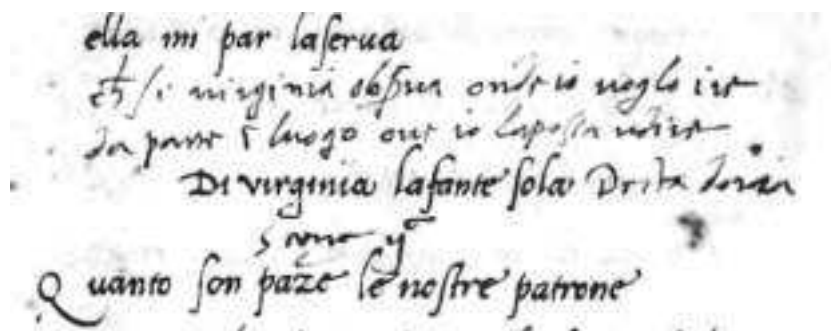 ella mi par laserua
si virginia obserua onde io voglo ire
da parte luogo oue io la possa vdire
Di virginia la fante sola Detta
Quanto son paze le nostre patrone